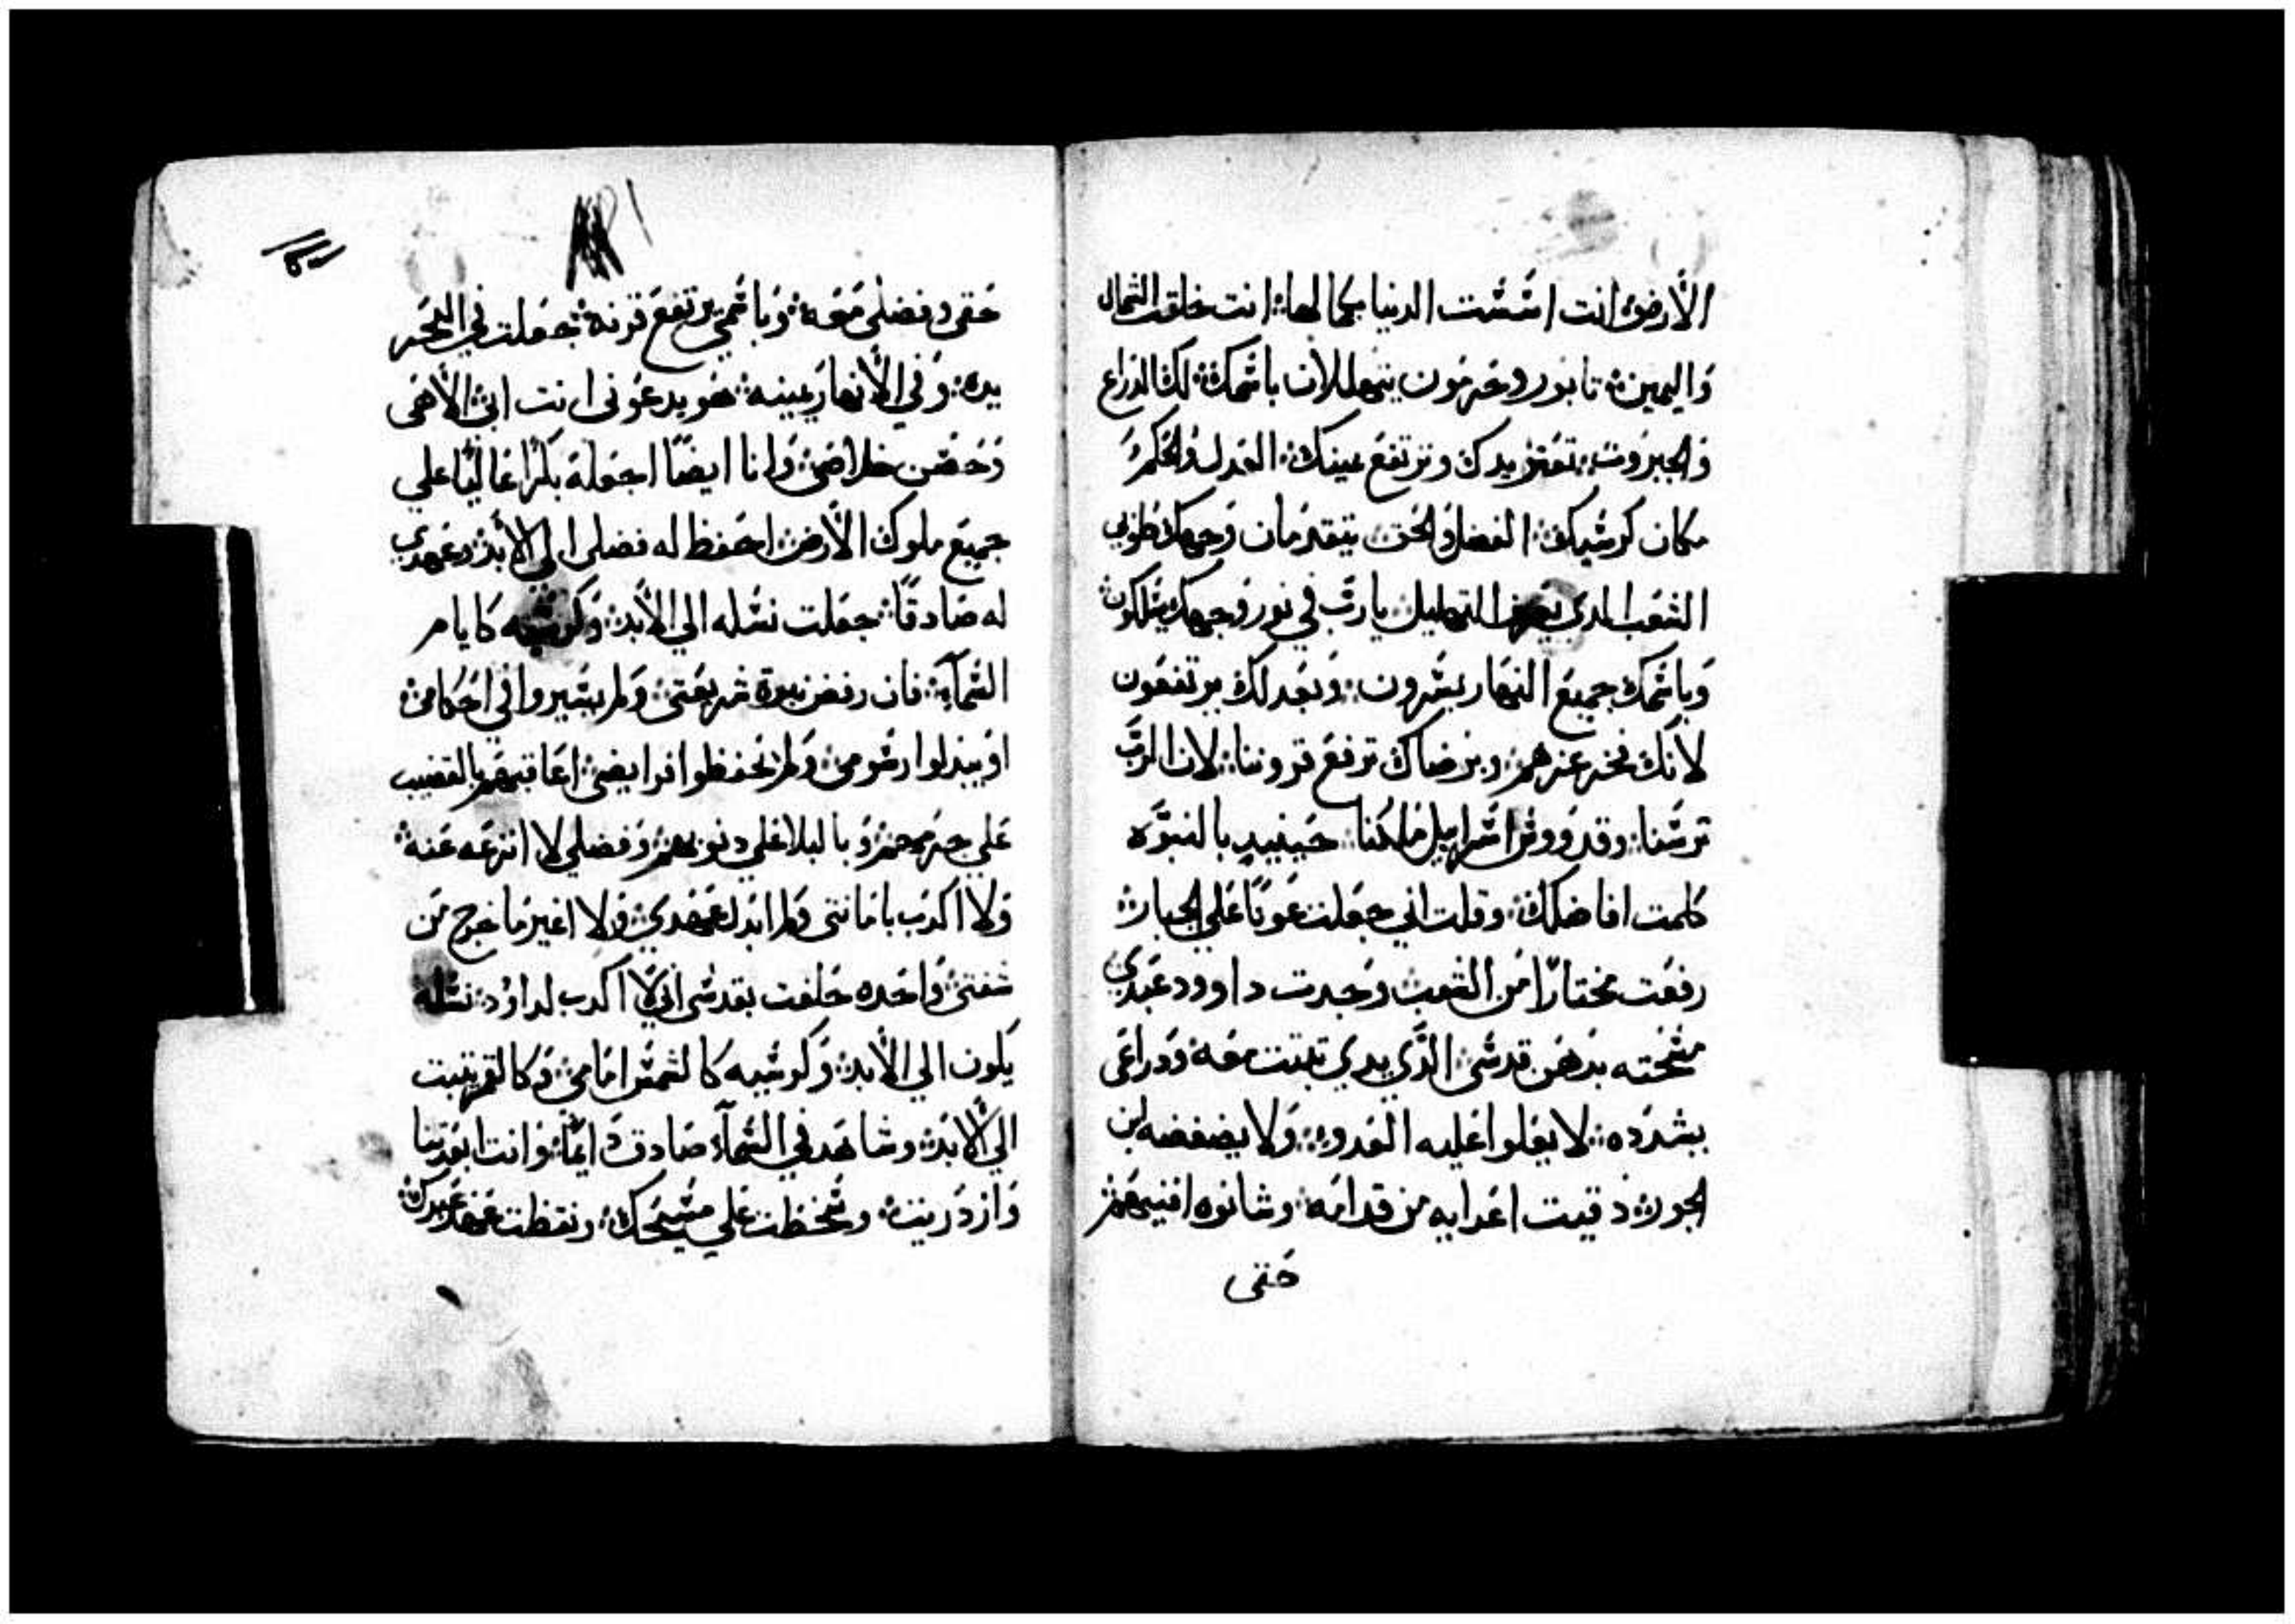 الأرض: انت اسّست الدنيا بكمالها: انت خلقت الشمال
واليمين: تابور وحرمون يتهللان باسمك: لك الذراع
والجبروت: تعتز يدك وترتفع يمينك: العدل والحكم
مكان كرسيك: الفضل والحق يتقدمان وجهك طوبي
الشعب الدي يعرف التهليل يارب في نور وجهك يسلكون
وباسمك جميع النهار يسرون: وبعدلك يرتفعون
لانك فخر عزهم: وبرضاك ترفع قروننا: لان الرب
ترسنا: وقدووس اسراييل ملكنا: حينيد بالنبوه
كلمت افاضلك: وقلت اني جعلت عونًا علي الجبار:
رفعت مختارًا من الشعب وجدت داوود عبدي
مسحته بدهن قدسي: الذي يدي تبتت معه: ودراعي
بشدده: لا يعلوا عليه العدو: ولا يضغضه ابن
الجور: دقيت اعدايه من قدامه: وشانوه افنيهم
حتى
حقي وفضلي معه: وباسمي يرتفع قرنه: جعلت في البحر
يده: وفي الأنهار يمينه: هو يدعوني انت ابي الاهي
وحصن خلاصي: وانا ايضًا اجعله بكرًا عاليًا علي
جميع ملوك الأرض: احفظ له فضلي الي الابد: وعهدي
له صادقًا: جعلت نسله الي الأبد: وكرسيه كايام
السمآ: فان رفض بنوة شريعتي: ولم يسيروا في احكامي:
او يبدلوا رسومي: ولم يحفظوا فرايضي: اعاقبهم بالقضيب
علي جرمهم: وبالبلا علي دنوبهم: وفضلي لا انزعه عنه:
ولا اكدب بامانتي ولم ابدل عهدي: ولا اغير ما خرج من
شفتي: واحده حلفت بقدسي اني لا اكدب لداود: نسله
يكون الي الأبد: وكرسيه كالشمس امامي: وكالقمر يتبت
الي الأبد: وشاهد في السمآء صادق دايمًا: وانت ابعدتنا
وازدريت: وسخطت علي مسيحك: ونقظت عهد عبدك: